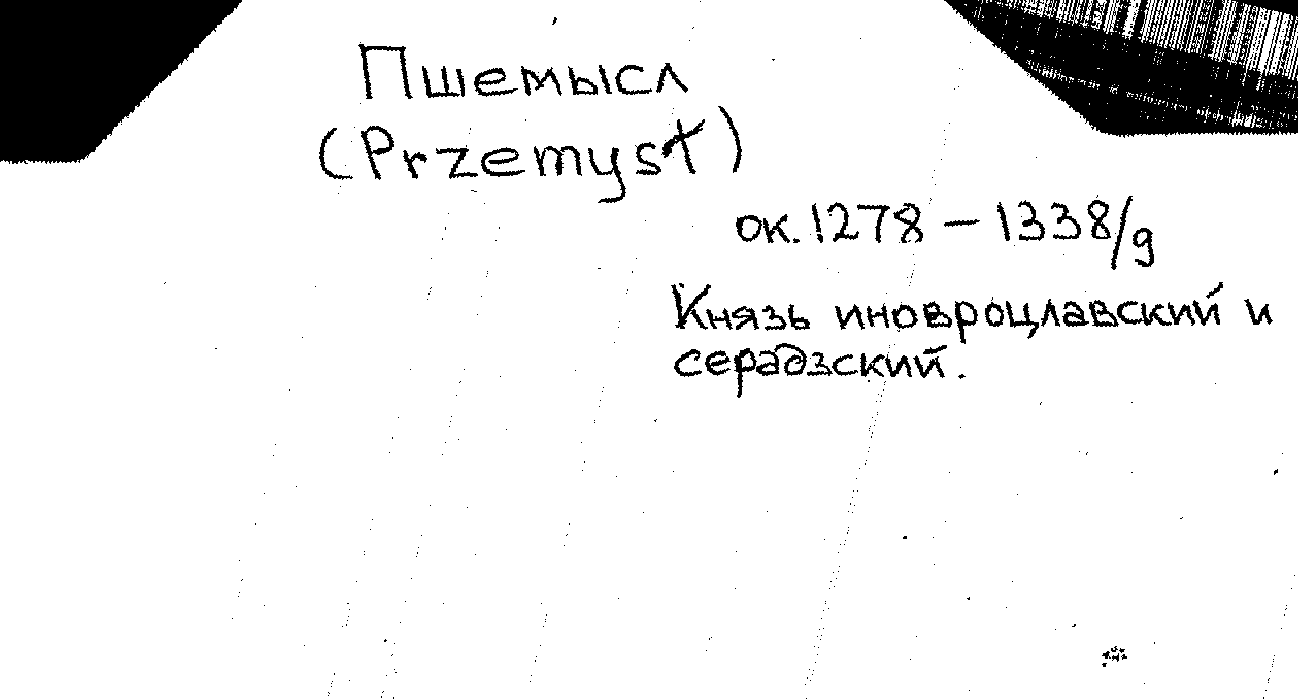 Пшемысл
(Przemysł)
ок. 1278 – 1338/9
Князь иновроцлавский и
серадзский.